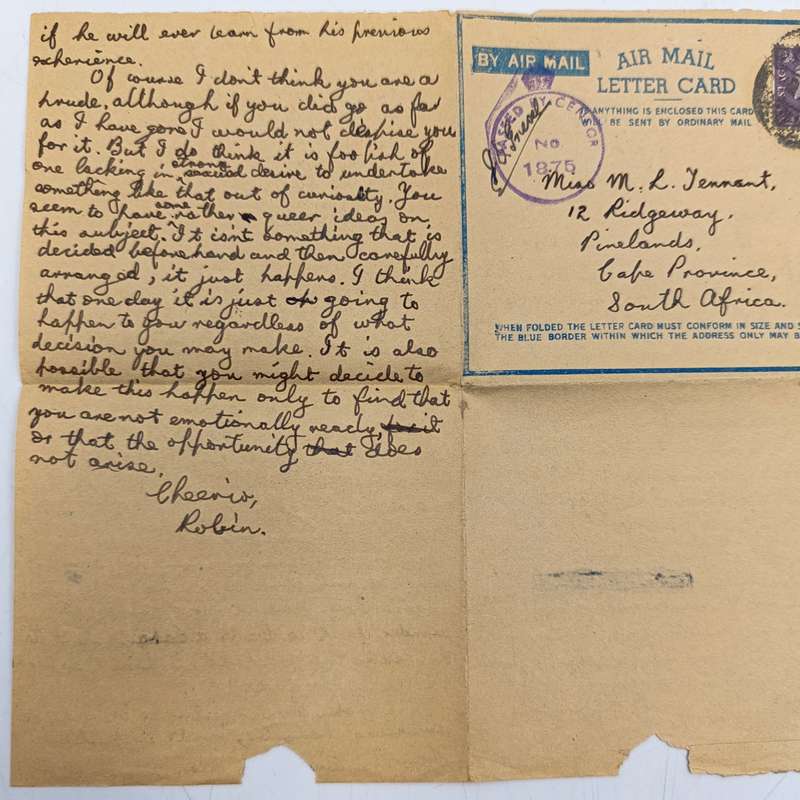 if he will ever learn from his previous
experience.
Of course I don't think you are a
prude, although if you did go as far
as I have gone I would not despise you
for it. But I do think it is foolish of
one lacking in strong sexual desire to undertake
something like that out of curiosity. You
seem to have some rather queer ideas on
this subject. It isn't something that is
decided beforehand and then carefully
arranged, it just happens. I think
that one day it is just going to
happen to you regardless of what
decision you may make. It is also
possible that you might decide to
make this happen only to find that
you are not emotionally ready for it
or that the opportunity that does
not arise.
Cheerio,
Robin.
BY AIR MAIL
AIR MAIL
LETTER CARD
IF ANYTHING IS ENCLOSED THIS CARD
WILL BE SENT BY ORDINARY MAIL
PASSED BY CENSOR
No
1875
Miss M. L. Tennant,
12 Ridgeway,
Pinelands,
Cape Province,
South Africa.
WHEN FOLDED THE LETTER CARD MUST CONFORM IN SIZE AND
THE BLUE BORDER WITHIN WHICH THE ADDRESS ONLY MAY